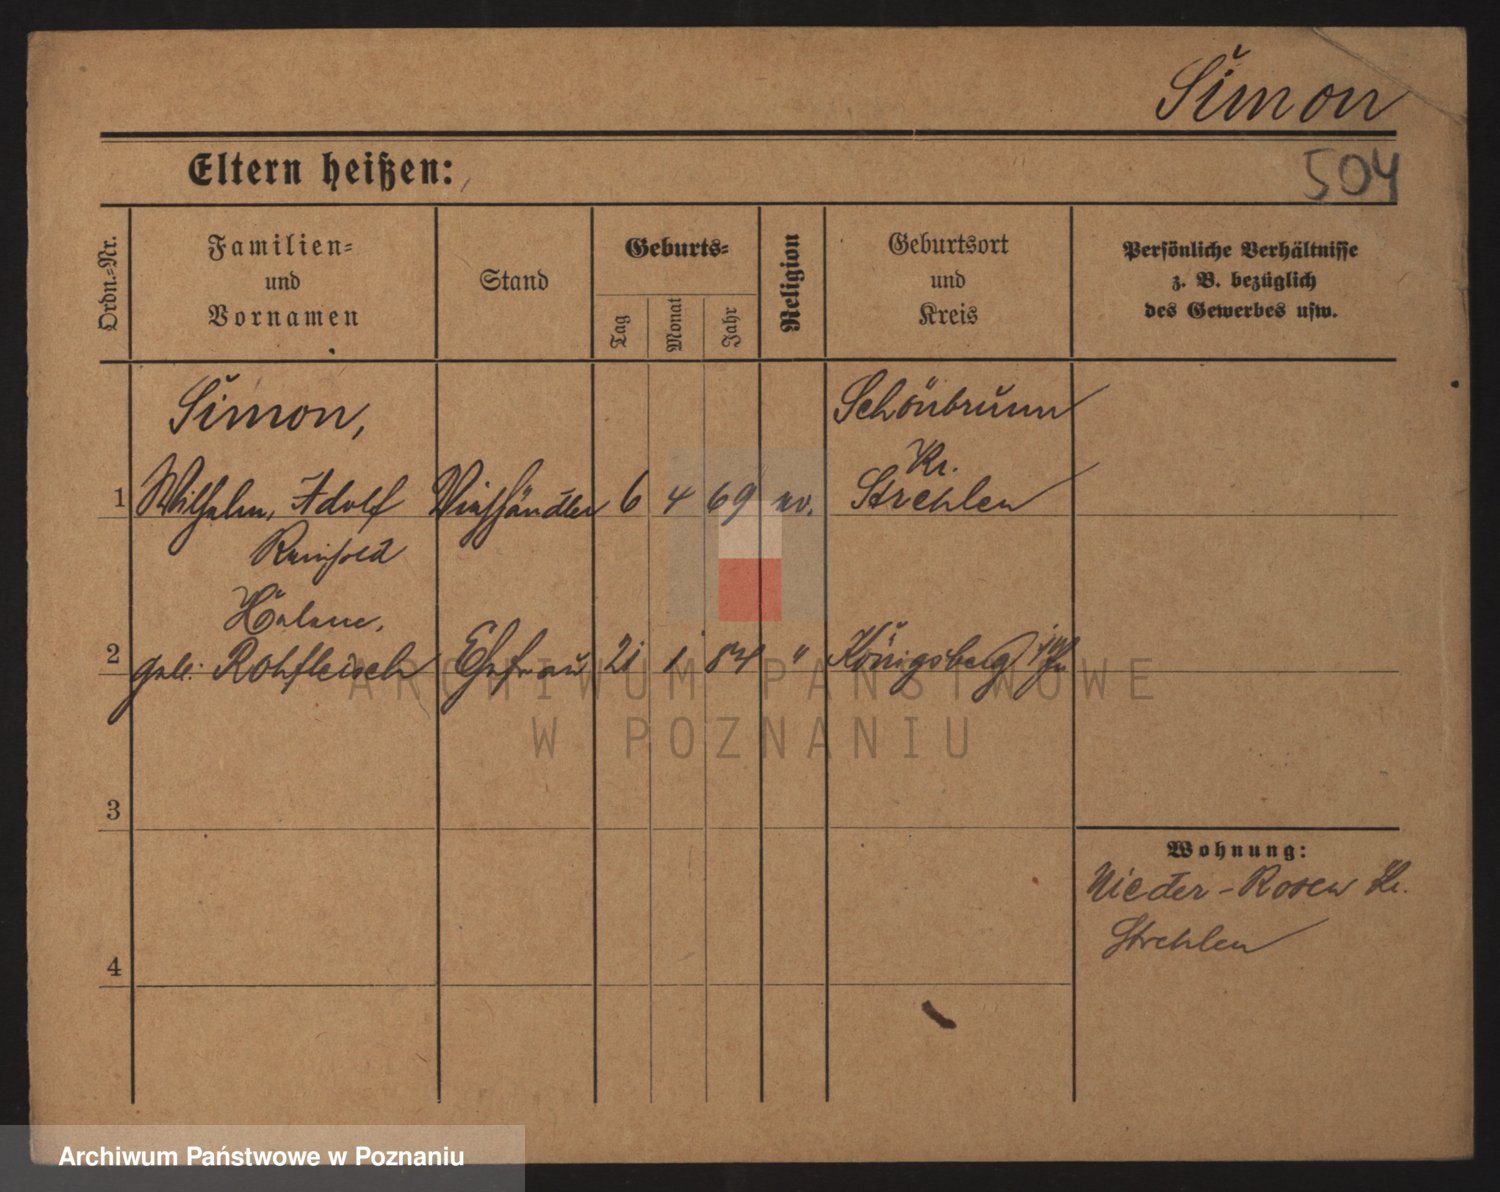 Simon
504
Eltern heißen:
Ordn.-Nr.
Familien-
und
Vornamen
Stand
Geburts-
Tag
Monat
Jahr
Religion
Geburtsort
und
Kreis
Persönliche Verhältnisse
z. B. bezüglich
des Gewerbes usw.
Simon,
Schönbrunn
Kr.
1 Wilhelm, Adolf Viehhändler 6 4 69 ev. Strehlen
Reinhold
Helene,
2 geb. Rohfleisch Ehefrau 21 1 84 " Königsberg i/Pr
3
4
Wohnung:
Nieder-Rosen Kr.
Strehlen
ARCHIWUM PAŃSTWOWE
W POZNANIU
Archiwum Państwowe w Poznaniu